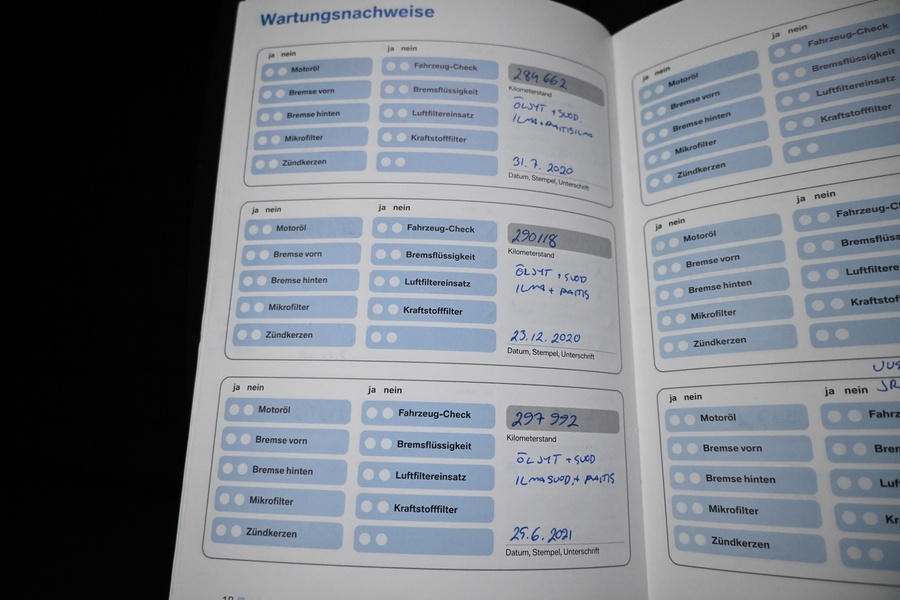 Wartungsnachweise
ja nein
ja nein
Motoröl
Fahrzeug-Check
Bremse vorn
Bremsflüssigkeit
Bremse hinten
Luftfiltereinsatz
Mikrofilter
Kraftstofffilter
Zündkerzen
284 662
Kilometerstand
ÖLJYT + SUOD
31.7. 2020
Datum, Stempel, Unterschrift
ja nein
ja nein
Motoröl
Fahrzeug-Check
Bremse vorn
Bremsflüssigkeit
Bremse hinten
Luftfiltereinsatz
Mikrofilter
Kraftstofffilter
Zündkerzen
290118
Kilometerstand
ÖLJYT + SUOD
ILMA + RAITIS
23.12. 2020
Datum, Stempel, Unterschrift
ja nein
ja nein
Motoröl
Fahrzeug-Check
Bremse vorn
Bremsflüssigkeit
Bremse hinten
Luftfiltereinsatz
Mikrofilter
Kraftstofffilter
Zündkerzen
297 992
Kilometerstand
ÖLJYT + SUOD
ILMASUOD, + RAITIS
25.6. 2021
Datum, Stempel, Unterschrift
ja nein
ja nein
Motoröl
Fahrzeug-Check
Bremse vorn
Bremsflüssigkeit
Bremse hinten
Luftfiltereinsatz
Mikrofilter
Kraftstofffilter
Zündkerzen
ja nein
ja nein
Motoröl
Fahrzeug-C
Bremse vorn
Bremsflüss
Bremse hinten
Luftfiltere
Mikrofilter
Kraftstof
Zündkerzen
ja nein
ja nein
Motoröl
Fahrz
Bremse vorn
Bren
Bremse hinten
Luf
Mikrofilter
Kr
Zündkerzen